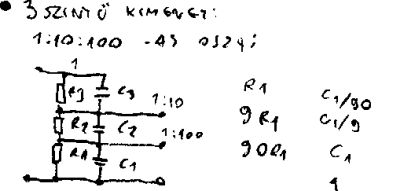 • 3 SZINTŰ KIMENET:
1:10:100 -AS OSZ
1
R3 C3 1:10
R2 C2 1:100
R1 C1
R1 C1/90
9R1 C1/9
90R1 C1
1